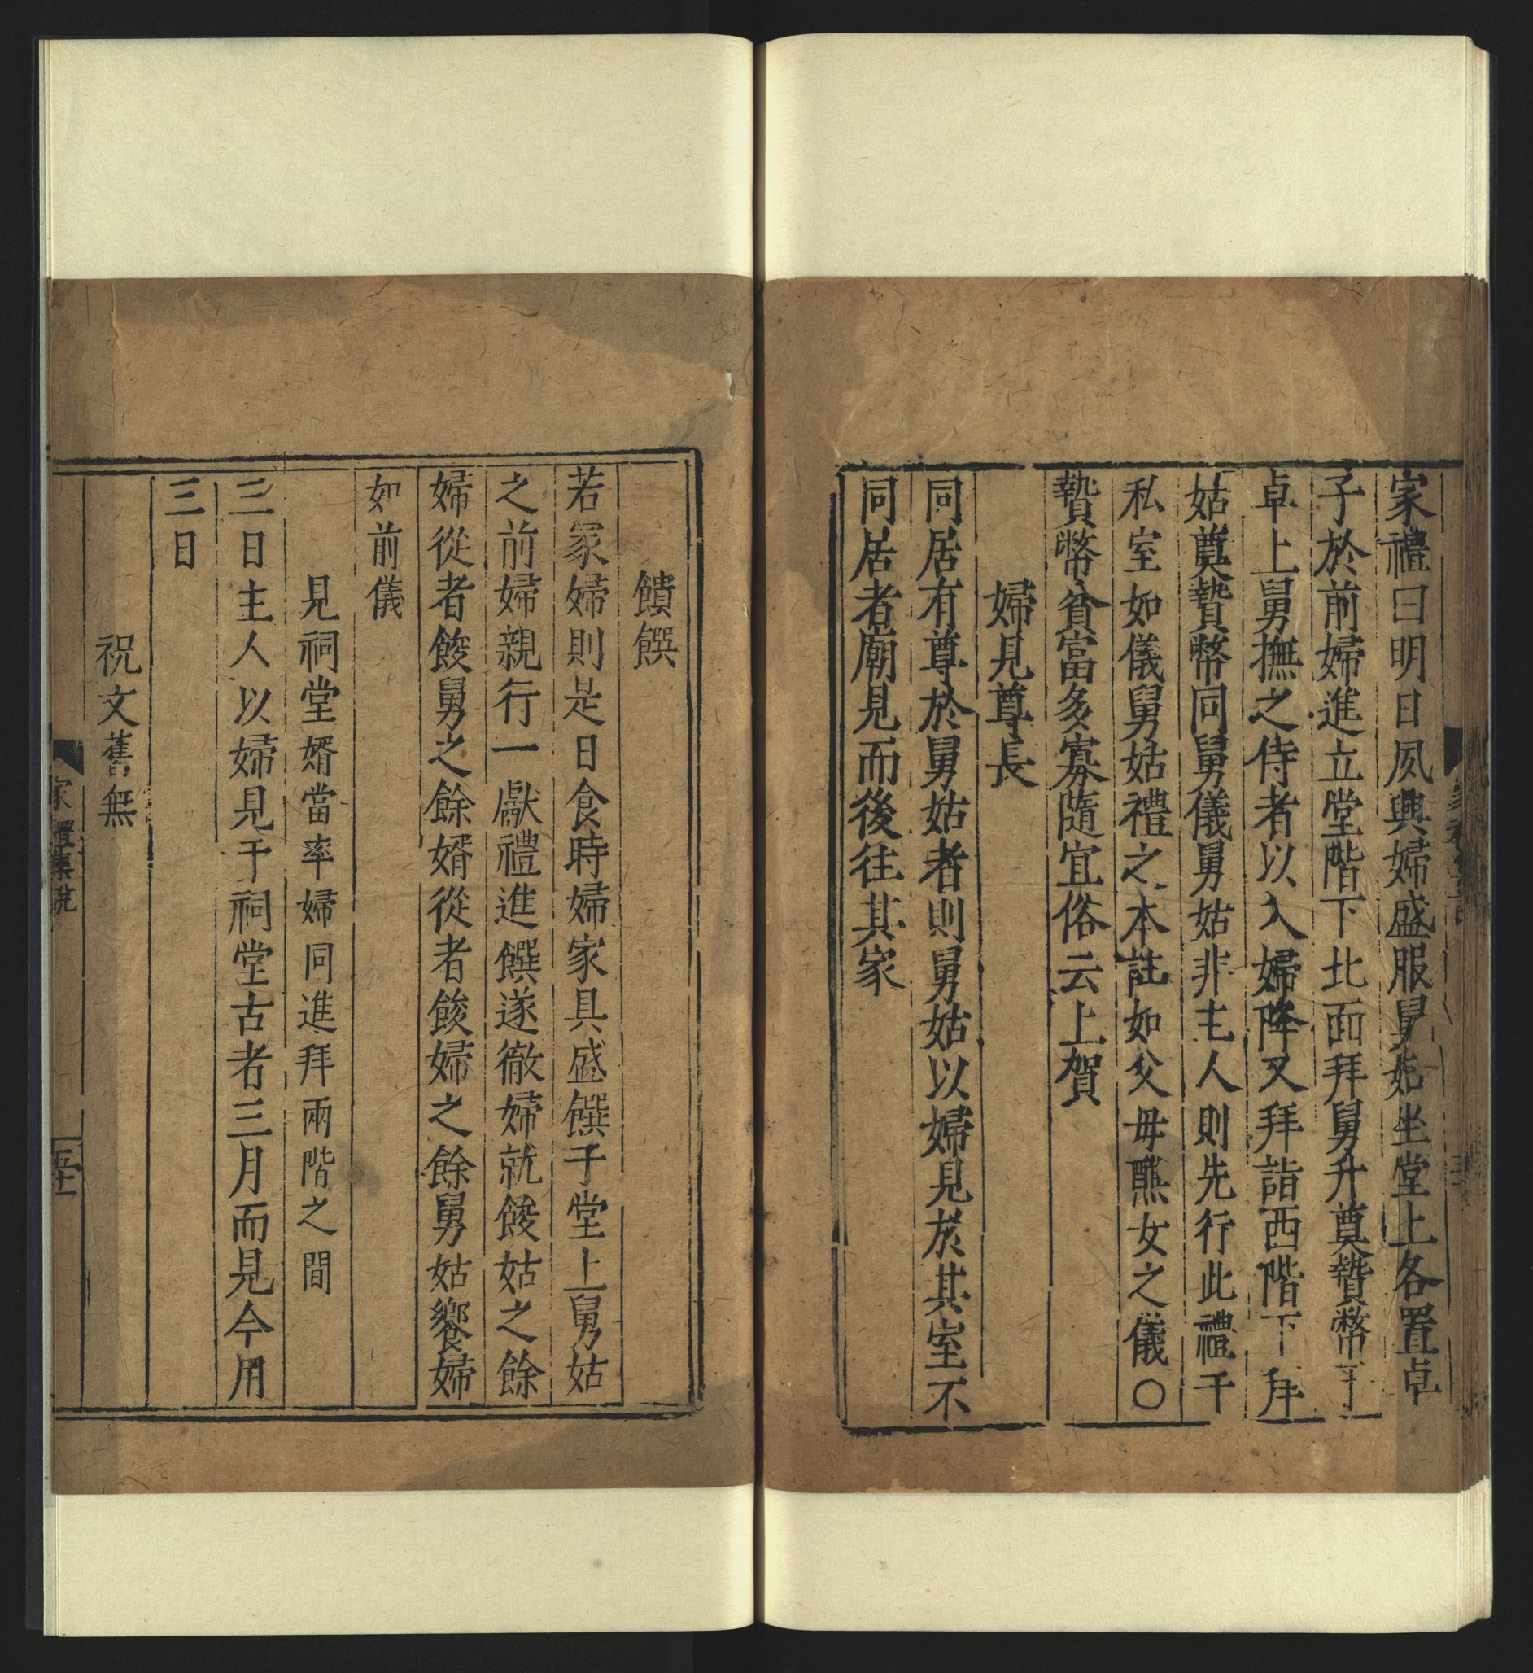 家禮曰明日夙興婦盛服舅姑坐堂上各置卓
子於前婦進立堂階下北面拜舅升奠贄幣于
卓上舅撫之侍者以入婦降又拜詣西階下拜
姑奠贄幣同舅儀舅姑非主人則先行此禮于
私室如儀舅姑禮之本註如父母醮女之儀〇
贄幣貧富多寡隨宜俗云上賀
婦見尊長
同居有尊於舅姑者則舅姑以婦見於其室不
同居者廟見而後往其家
饋饌
若冢婦則是日食時婦家具盛饌于堂上舅姑
之前婦親行一獻禮進饌遂徹婦就餕姑之餘
婦從者餕舅之餘婿從者餕婦之餘舅姑饗婦
如前儀
見祠堂婿當率婦同進拜兩階之間
三日主人以婦見于祠堂古者三月而見今用
三日
祝文舊無
家禮集說